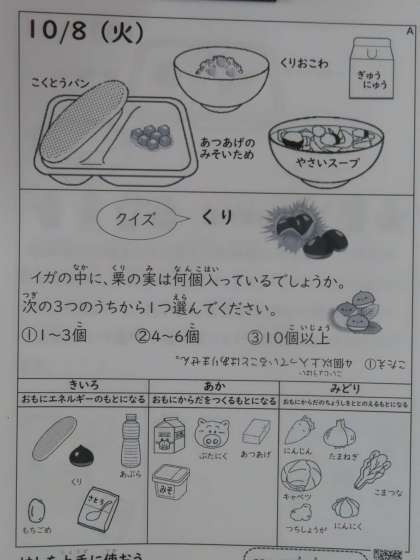 10/8（火）
A
くりおこわ
ぎゅう
にゅう
こくとうパン
あつあげの
みそいため
やさいスープ
クイズ
くり
イガの中に、栗の実は何個入っているでしょうか。
次の3つのうちから1つ選んでください。
①1～3個
②4～6個
③10個以上
こたえ①
4個以上入っていることはありません。
きいろ
あか
みどり
おもにエネルギーのもとになる
おもにからだをつくるもとになる
おもにからだのちょうしをととのえるもとになる
くり
あぶら
もちごめ
さとう
ぶたにく
あつあげ
みそ
にんじん
たまねぎ
キャベツ
こまつな
つちしょうが
にんにく